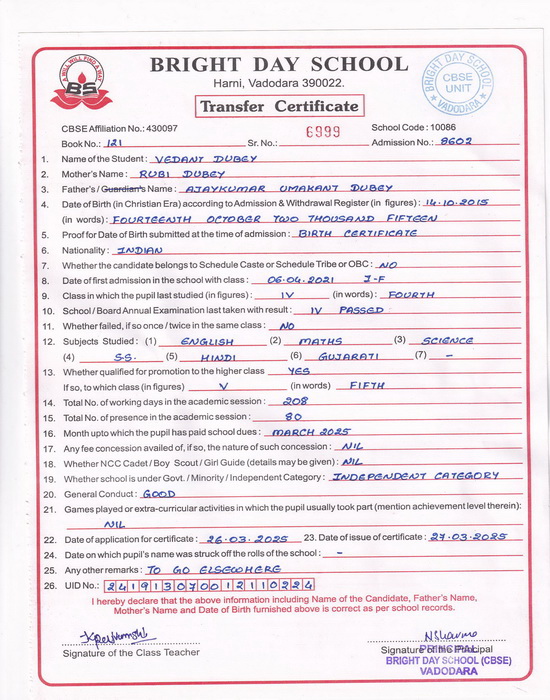 A WILL WILL FIND A WAY
BS
BRIGHT DAY SCHOOL
Harni, Vadodara 390022.
BRIGHT DAY SCHOOL
CBSE
UNIT
VADODARA
Transfer Certificate
CBSE Affiliation No.: 430097 6999 School Code : 10086
Book No.: 121 Sr. No.: Admission No.: 8602
1. Name of the Student : VEDANT DUBEY
2. Mother's Name : RUBI DUBEY
3. Father's / Guardian's Name : AJAYKUMAR UMAKANT DUBEY
4. Date of Birth (in Christian Era) according to Admission & Withdrawal Register (in figures) : 14.10.2015
(in words) : FOURTEENTH OCTOBER TWO THOUSAND FIFTEEN
5. Proof for Date of Birth submitted at the time of admission : BIRTH CERTIFICATE
6. Nationality : INDIAN
7. Whether the candidate belongs to Schedule Caste or Schedule Tribe or OBC : NO
8. Date of first admission in the school with class : 06.04.2021 J-F
9. Class in which the pupil last studied (in figures) : IV (in words) : FOURTH
10. School / Board Annual Examination last taken with result : IV PASSED
11. Whether failed, if so once / twice in the same class : NO
12. Subjects Studied : (1) ENGLISH (2) MATHS (3) SCIENCE
(4) S.S. (5) HINDI (6) GUJARATI (7) -
13. Whether qualified for promotion to the higher class YES
If so, to which class (in figures) V (in words) FIFTH
14. Total No. of working days in the academic session : 208
15. Total No. of presence in the academic session : 80
16. Month upto which the pupil has paid school dues : MARCH 2025
17. Any fee concession availed of, if so, the nature of such concession : NIL
18. Whether NCC Cadet / Boy Scout / Girl Guide (details may be given) : NIL
19. Whether school is under Govt. / Minority / Independent Category : INDEPENDENT CATEGORY
20. General Conduct : GOOD
21. Games played or extra-curricular activities in which the pupil usually took part (mention achievement level therein) :
NIL
22. Date of application for certificate : 26.03.2025 23. Date of issue of certificate : 27.03.2025
24. Date on which pupil's name was struck off the rolls of the school : -
25. Any other remarks : TO GO ELSEWHERE
26. UID No.: 241913070012110224
I hereby declare that the above information including Name of the Candidate, Father's Name,
Mother's Name and Date of Birth furnished above is correct as per school records.
Signature of the Class Teacher Signature of the Principal
PRINCIPAL
BRIGHT DAY SCHOOL (CBSE)
VADODARA